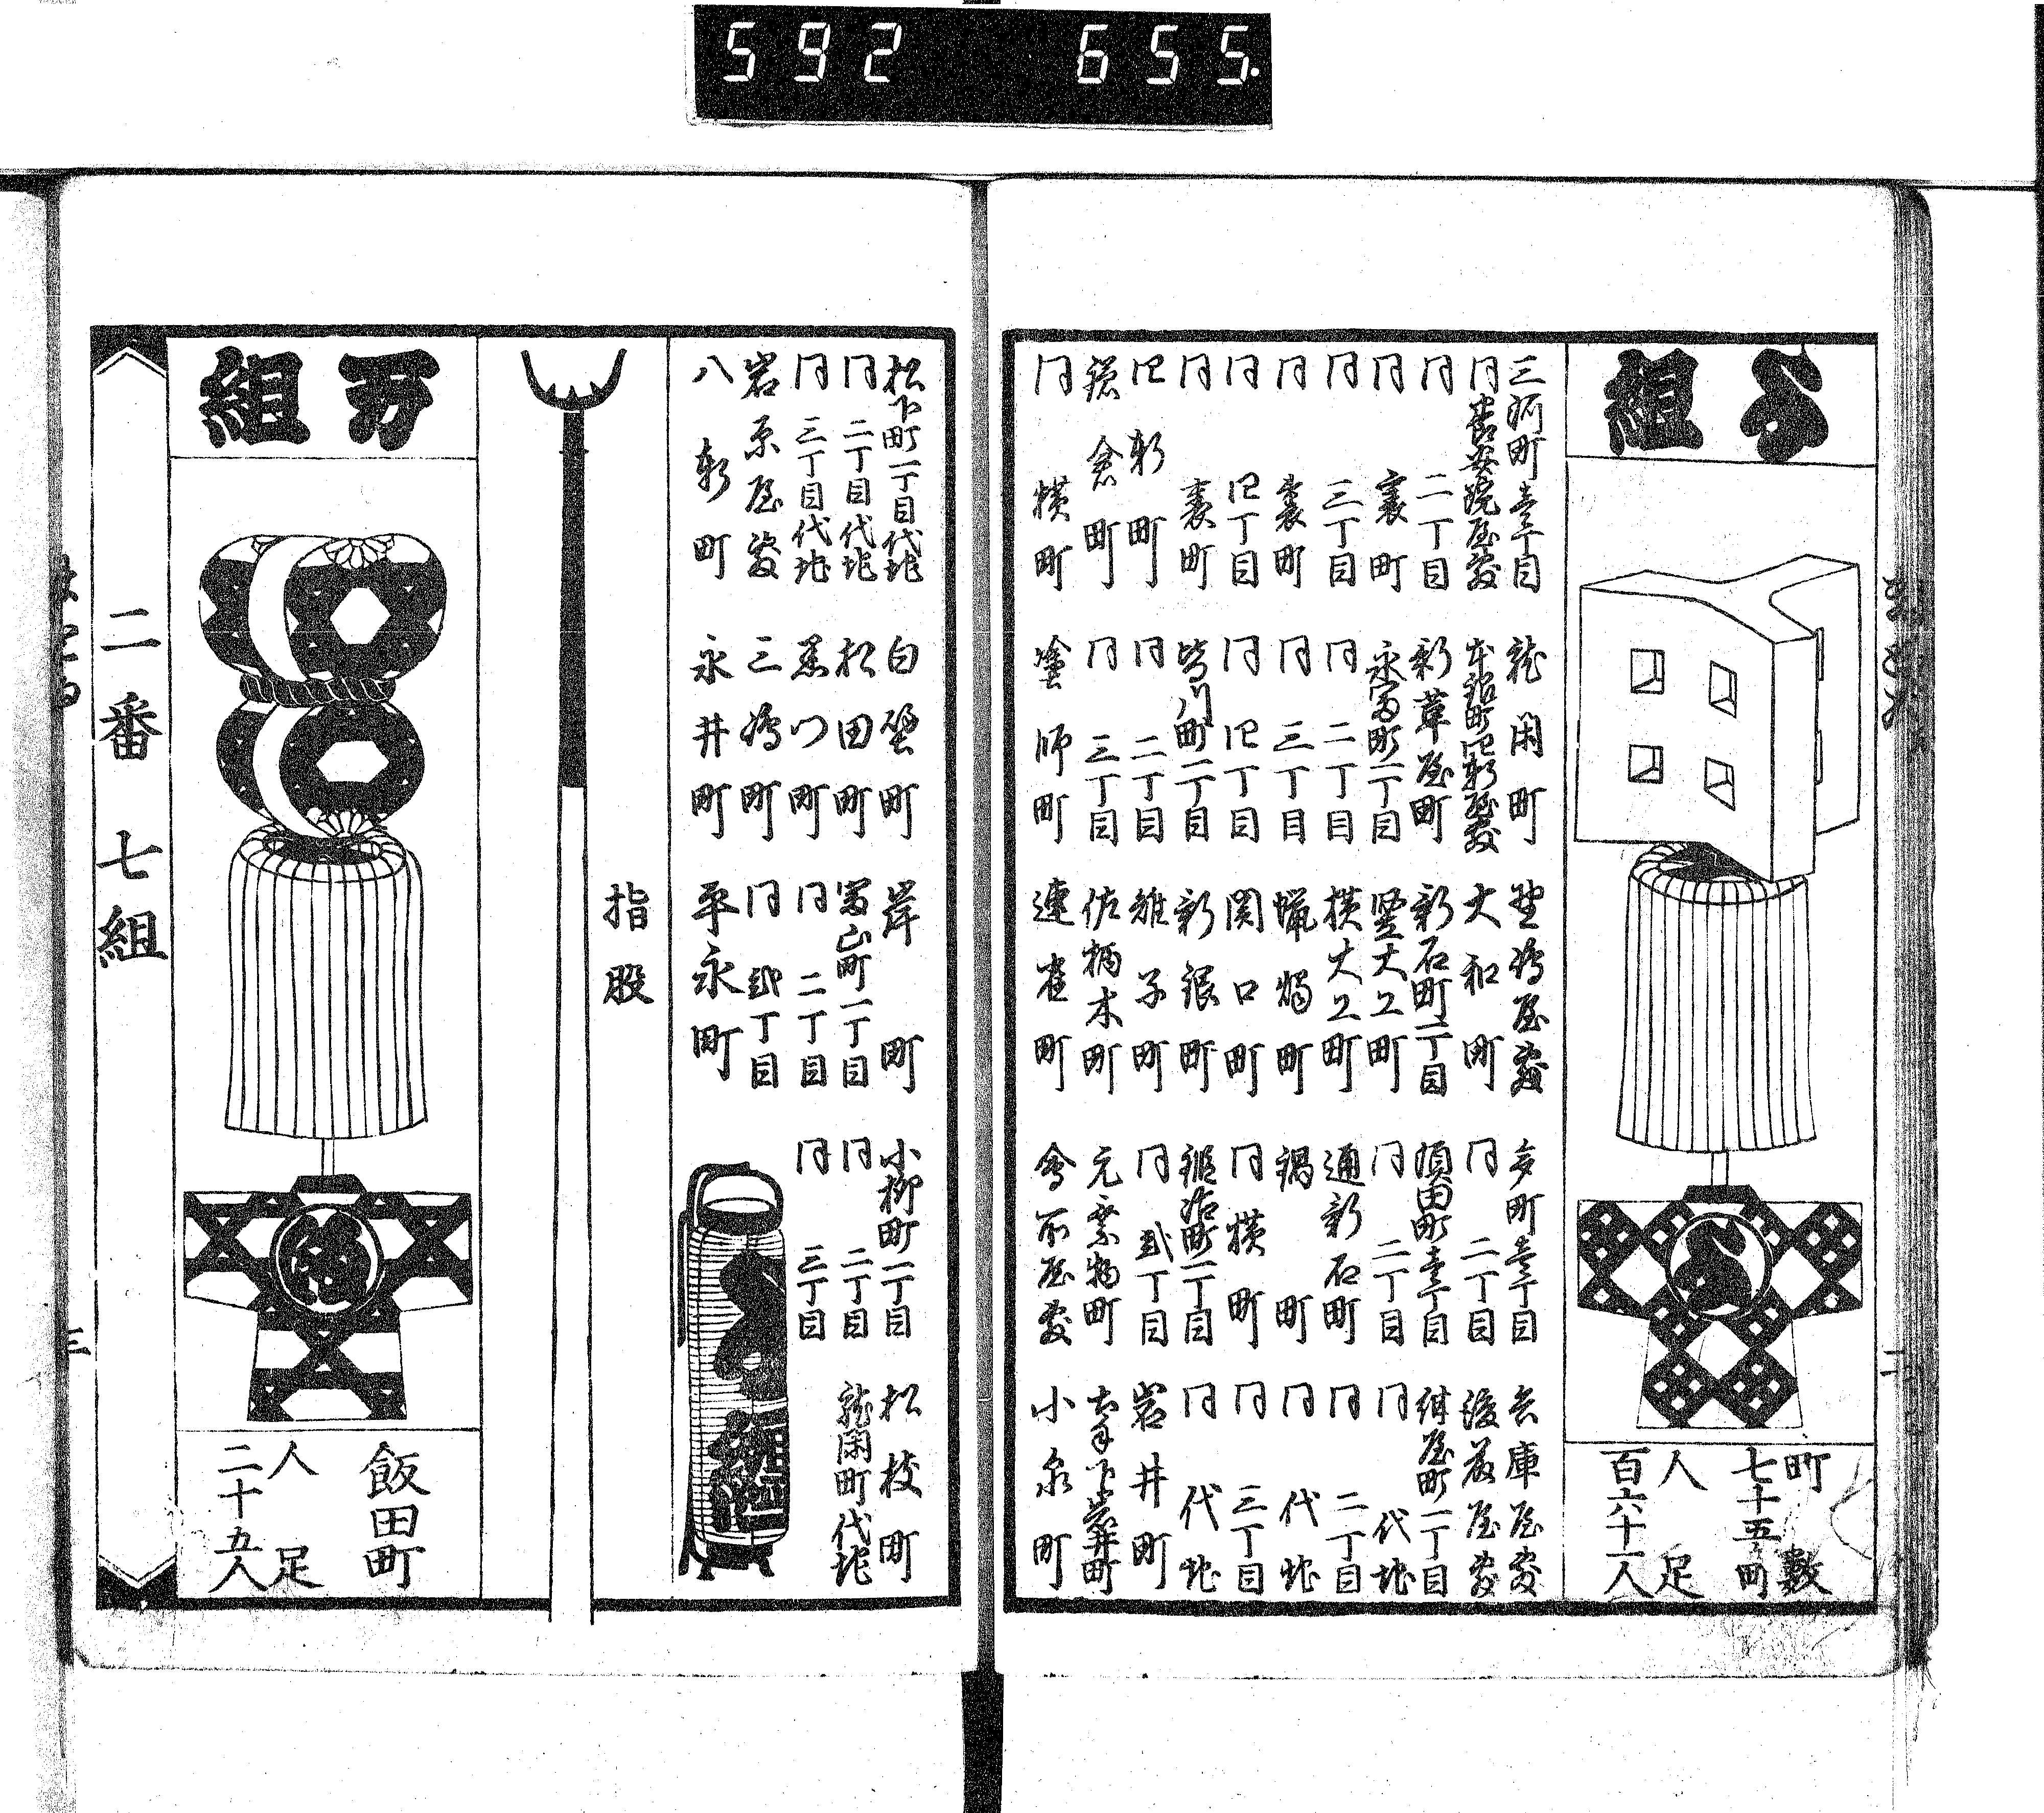 592 655.
よ組
町数
七十五町
人足
三河町壱丁目 龍閑町 埜嶋屋敷 多町壱丁目 兵庫屋敷
同善安院屋敷 本銀町四軒屋敷 大和町 同二丁目 後藤屋敷
同二丁目 新革屋町 新石町一丁目 須田町壱丁目 紺屋町一丁目
同裏町 永富町一丁目 竪大工町 同二丁目 同代地
同三丁目 同二丁目 横大工町 通新石町 同二丁目
同裏町 同三丁目 蝋燭町 鍋町 同代地
同四丁目 同四丁目 関口町 同横町 同三丁目
同裏町 皆川町一丁目 新銀町 鍛冶町一丁目 同代地
四軒町 同二丁目 雉子町 同弐丁目 岩井町
鎌倉町 同三丁目 佐柄木町 元乗物町
同横町 塗師町 連雀町 会所屋敷 小泉町
松下町一丁目代地 白壁町 岸町 小柳町一丁目 松枝町
同二丁目代地 松田町 富山町一丁目 同二丁目 龍閑町代地
同三丁目代地 黒門町 同二丁目 同三丁目
三嶋町 同弐丁目
八軒町 永井町 平永町
よ組
指股
万組
飯田町
人足
二十五人
二番七組
三